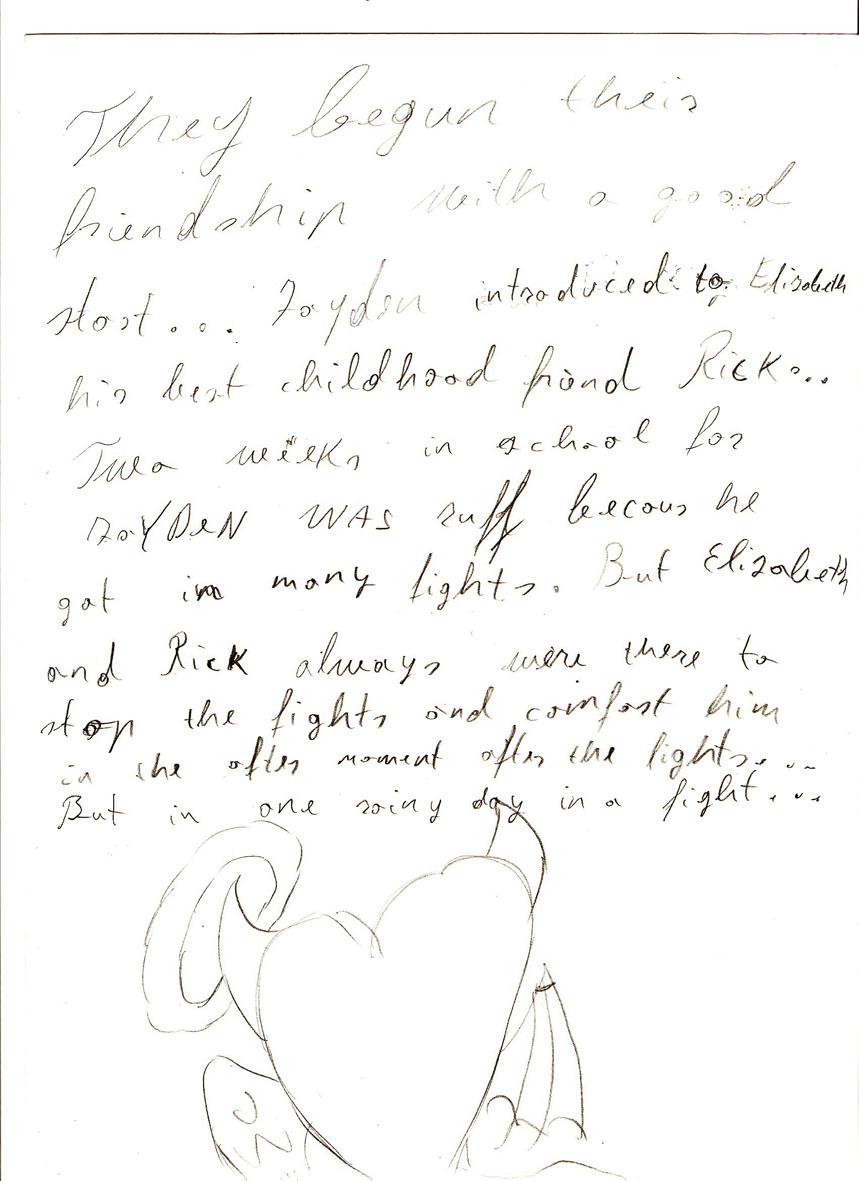 They begun their
friendship with a good
start... Zayden introduced to Elisabeth
his best childhood friend Rick...
Two weeks in school for
ZaYDeN WAS ruff becous he
got in many fights. But Elizabeth
and Rick always were there to
stop the fights and comfort him
in the after moment after the fights....
But in one rainy day in a fight....